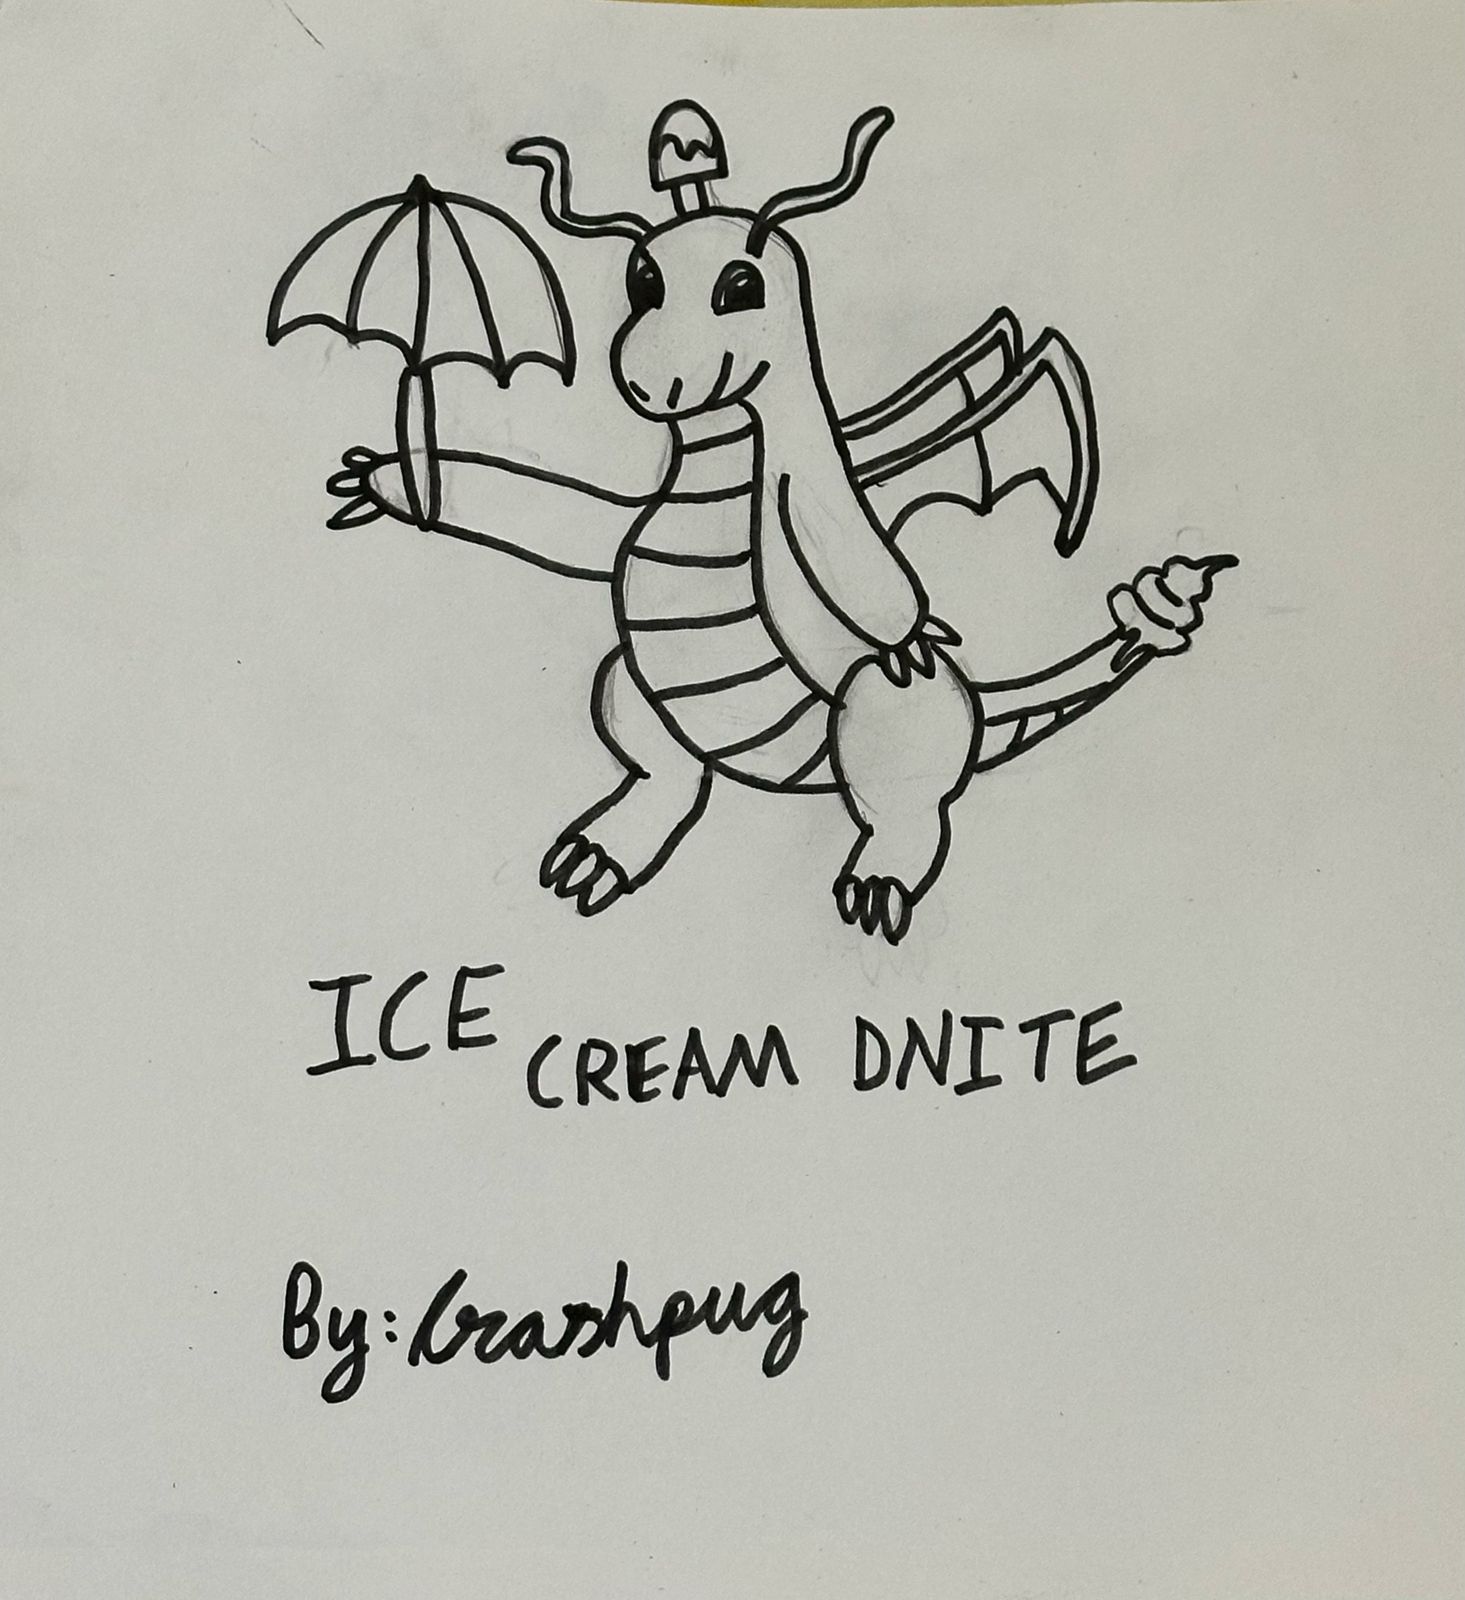 ICE CREAM DNITE
By: Crashpug